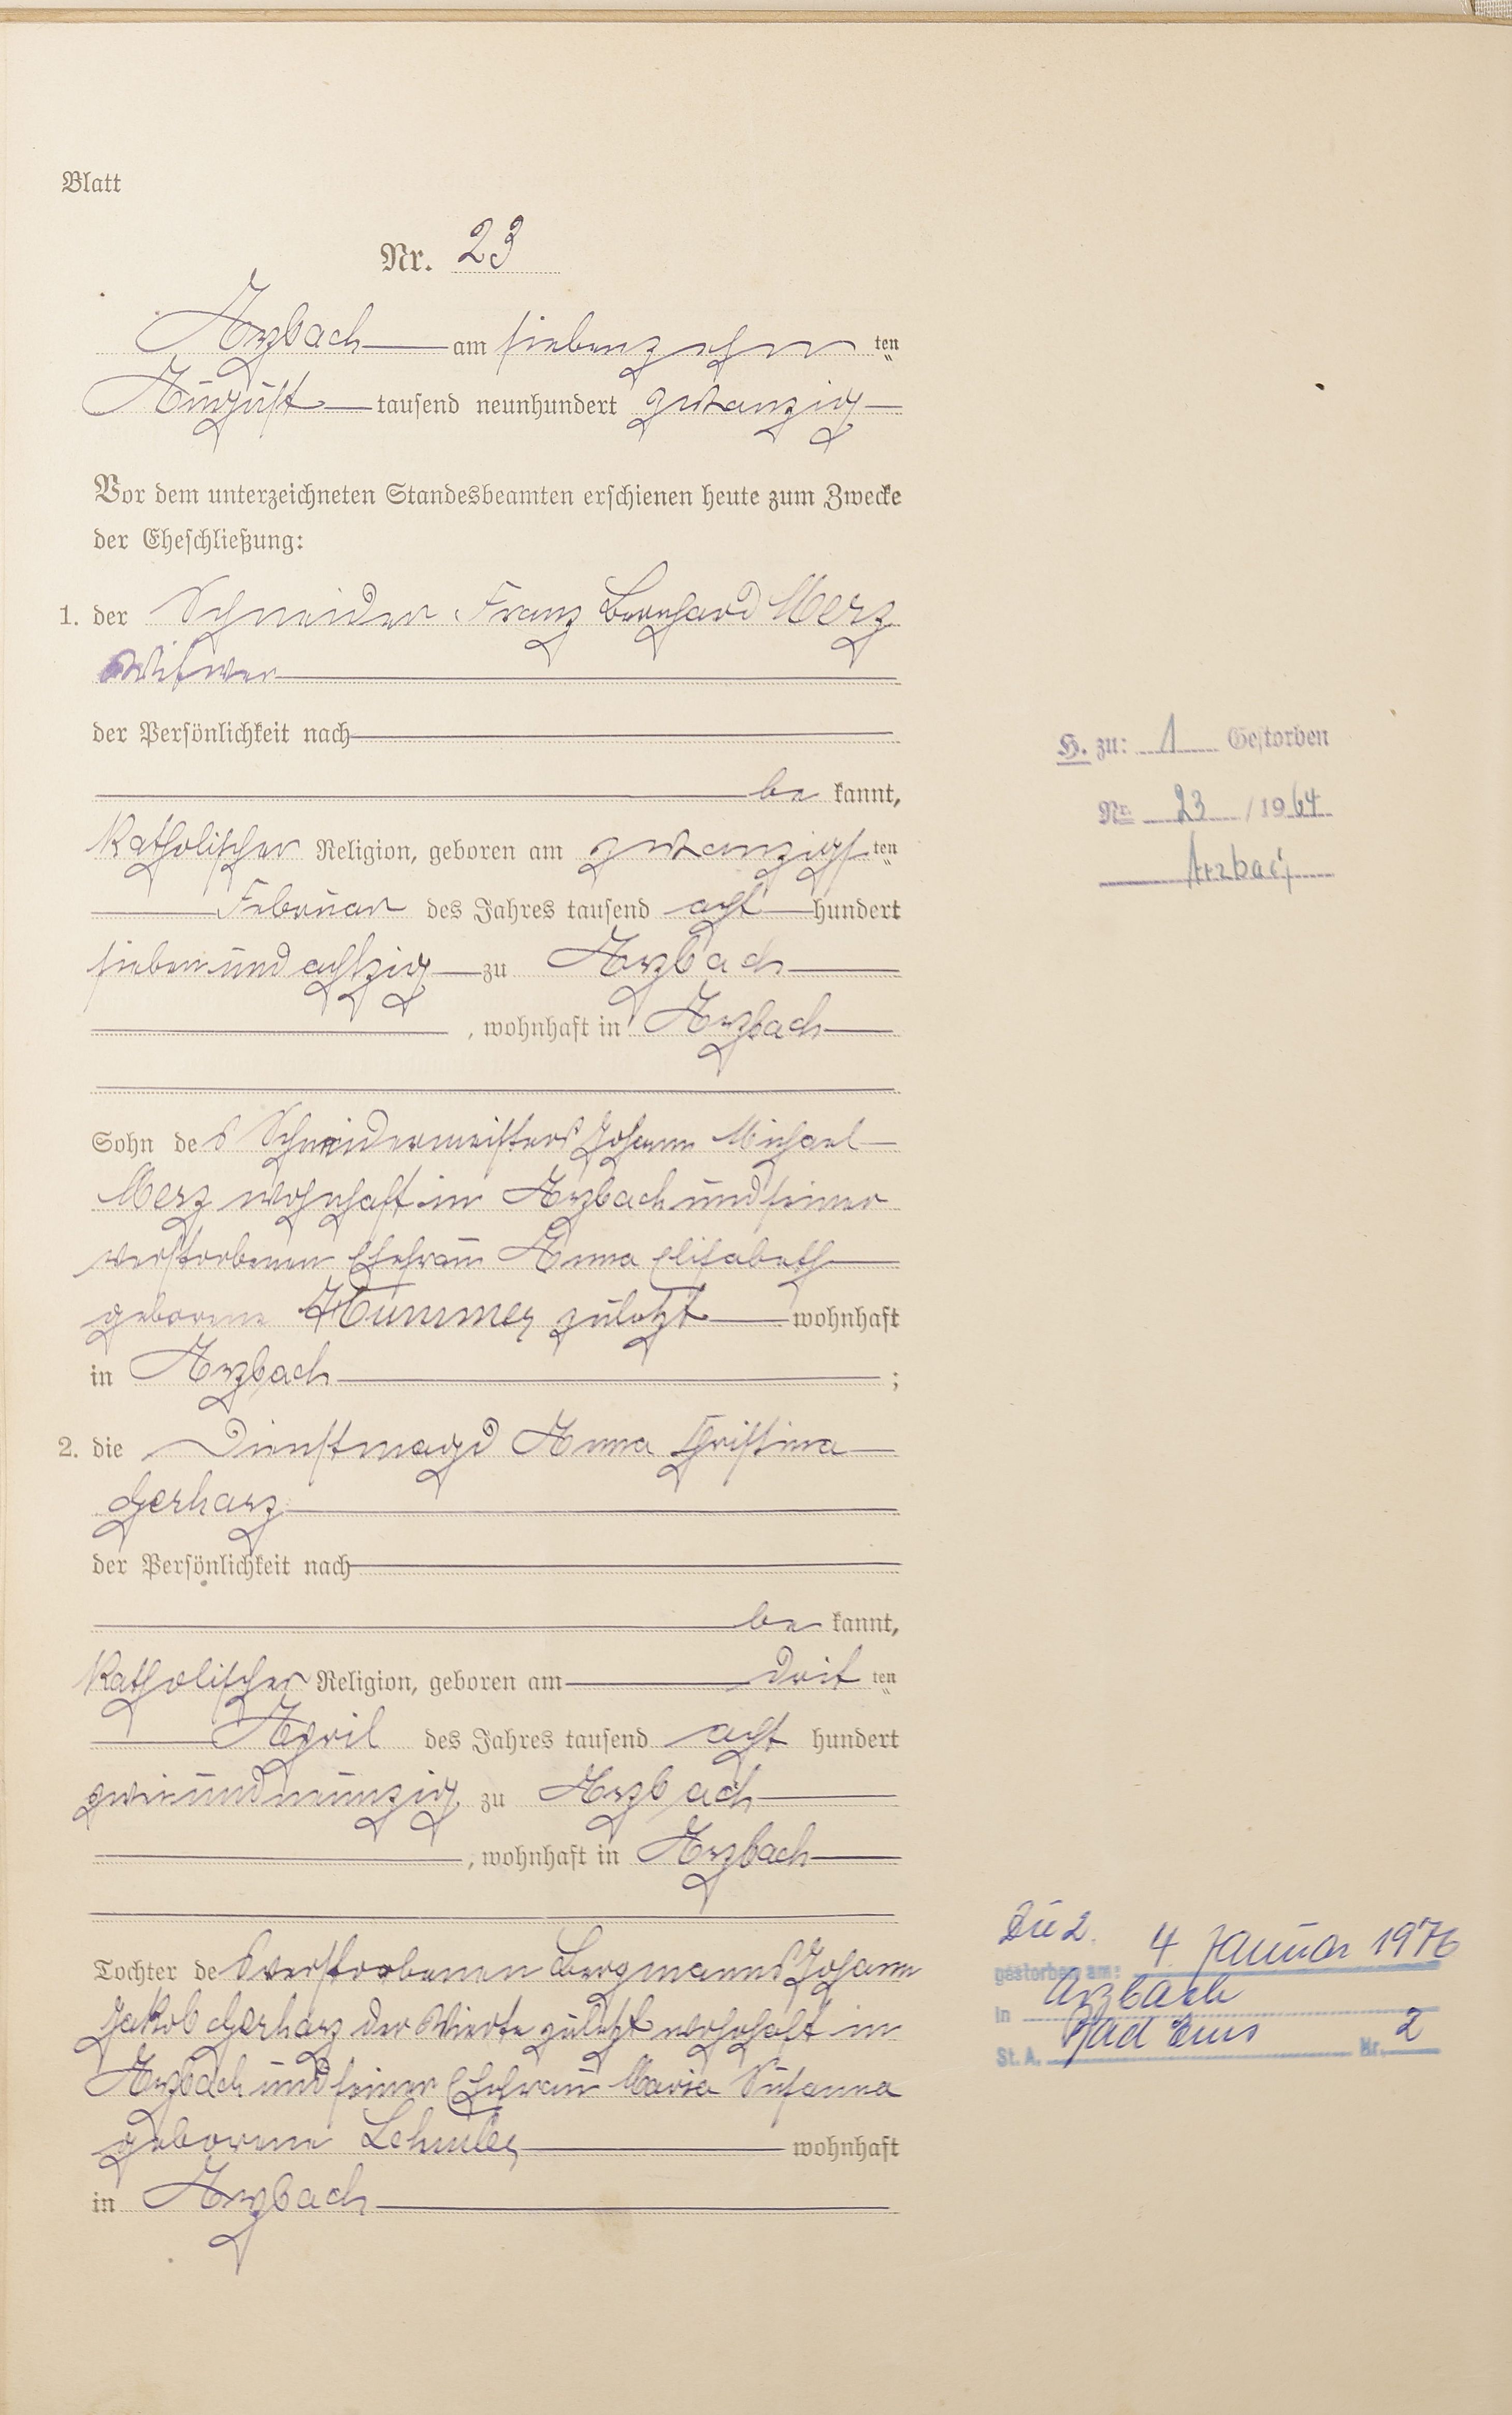 Blatt
Nr. 23
Arzbach am siebenzehn ten
August tausend neunhundert zwanzig
Vor dem unterzeichneten Standesbeamten erschienen heute zum Zwecke
der Eheschließung:
1. der Schneider Franz Bernhard Merz
Witwer
der Persönlichkeit nach
be kannt,
Katholischer Religion, geboren am zwanzigs ten
Februar des Jahres tausend acht hundert
sieben und achtzig zu Arzbach
, wohnhaft in Arzbach
H. zu: 1 Gestorben
Nr. 23 / 1964
Arzbach
Sohn des Schneidermeisters Johann Michael
Merz wohnhaft in Arzbach und seiner
verstorbenen Ehefrau Anna Elisabeth
geborene Hummer zuletzt wohnhaft
in Arzbach ;
2. die Dienstmagd Anna Christina
Gerharz
der Persönlichkeit nach
be kannt,
Katholischer Religion, geboren am drit ten
April des Jahres tausend acht hundert
zweiundneunzig zu Arzbach
, wohnhaft in Arzbach
Tochter des verstorbenen Bergmanns Johann
Jakob Gerharz der Vierte zuletzt wohnhaft in
Arzbach und seiner Ehefrau Maria Susanna
geborene Lehmler wohnhaft
in Arzbach
Zu 2.
gestorben am: 4. Januar 1976
in Arzbach
St. A. Bad Ems Nr. 2